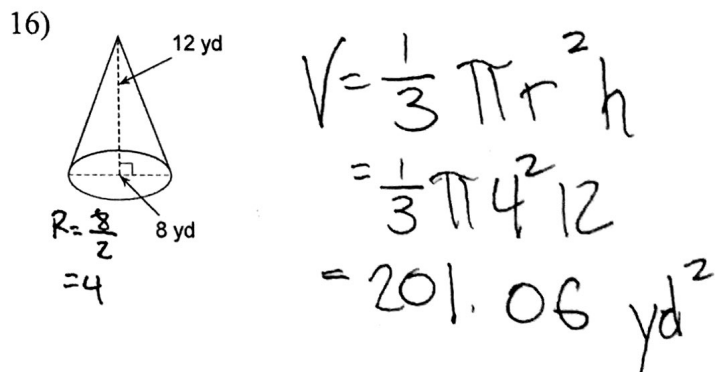 16)
12 yd
8 yd
R = 8/2
= 4
V = 1/3 πr²h
= 1/3 π4²12
= 201.06 yd²